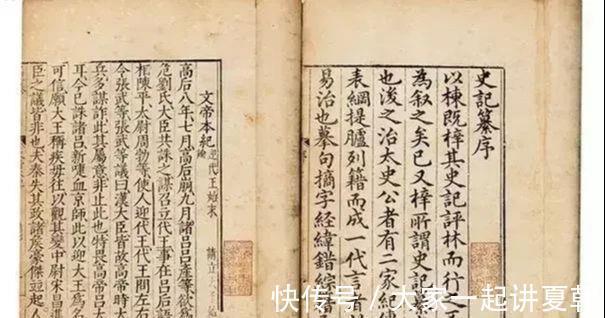 史記纂序
以棟既梓其史記評林而行之
為叙之矣已又梓所謂史記
也浚之治太史公者有二家
表綱提臚列籍而成一代言者
易治也摹句摘字經緯錯綜
文帝本紀 代王始末 請立
高后八年七月高后崩九月諸呂呂產等欲為
危劉氏大臣共誅之謀召立代王事在呂后
相陳平太尉周勃等使人迎代王代王問左右
令張武等張武等議曰漢大臣皆故高帝時大
兵多謀詐此其屬意非止此也特畏高帝呂太
耳今已誅諸呂新喋血京師此以迎大王為
可信願大王稱疾毋往以觀其變中尉宋昌進
臣之議皆非也夫秦失其政諸侯豪傑並起人
快传号 / 大家一起讲夏朝